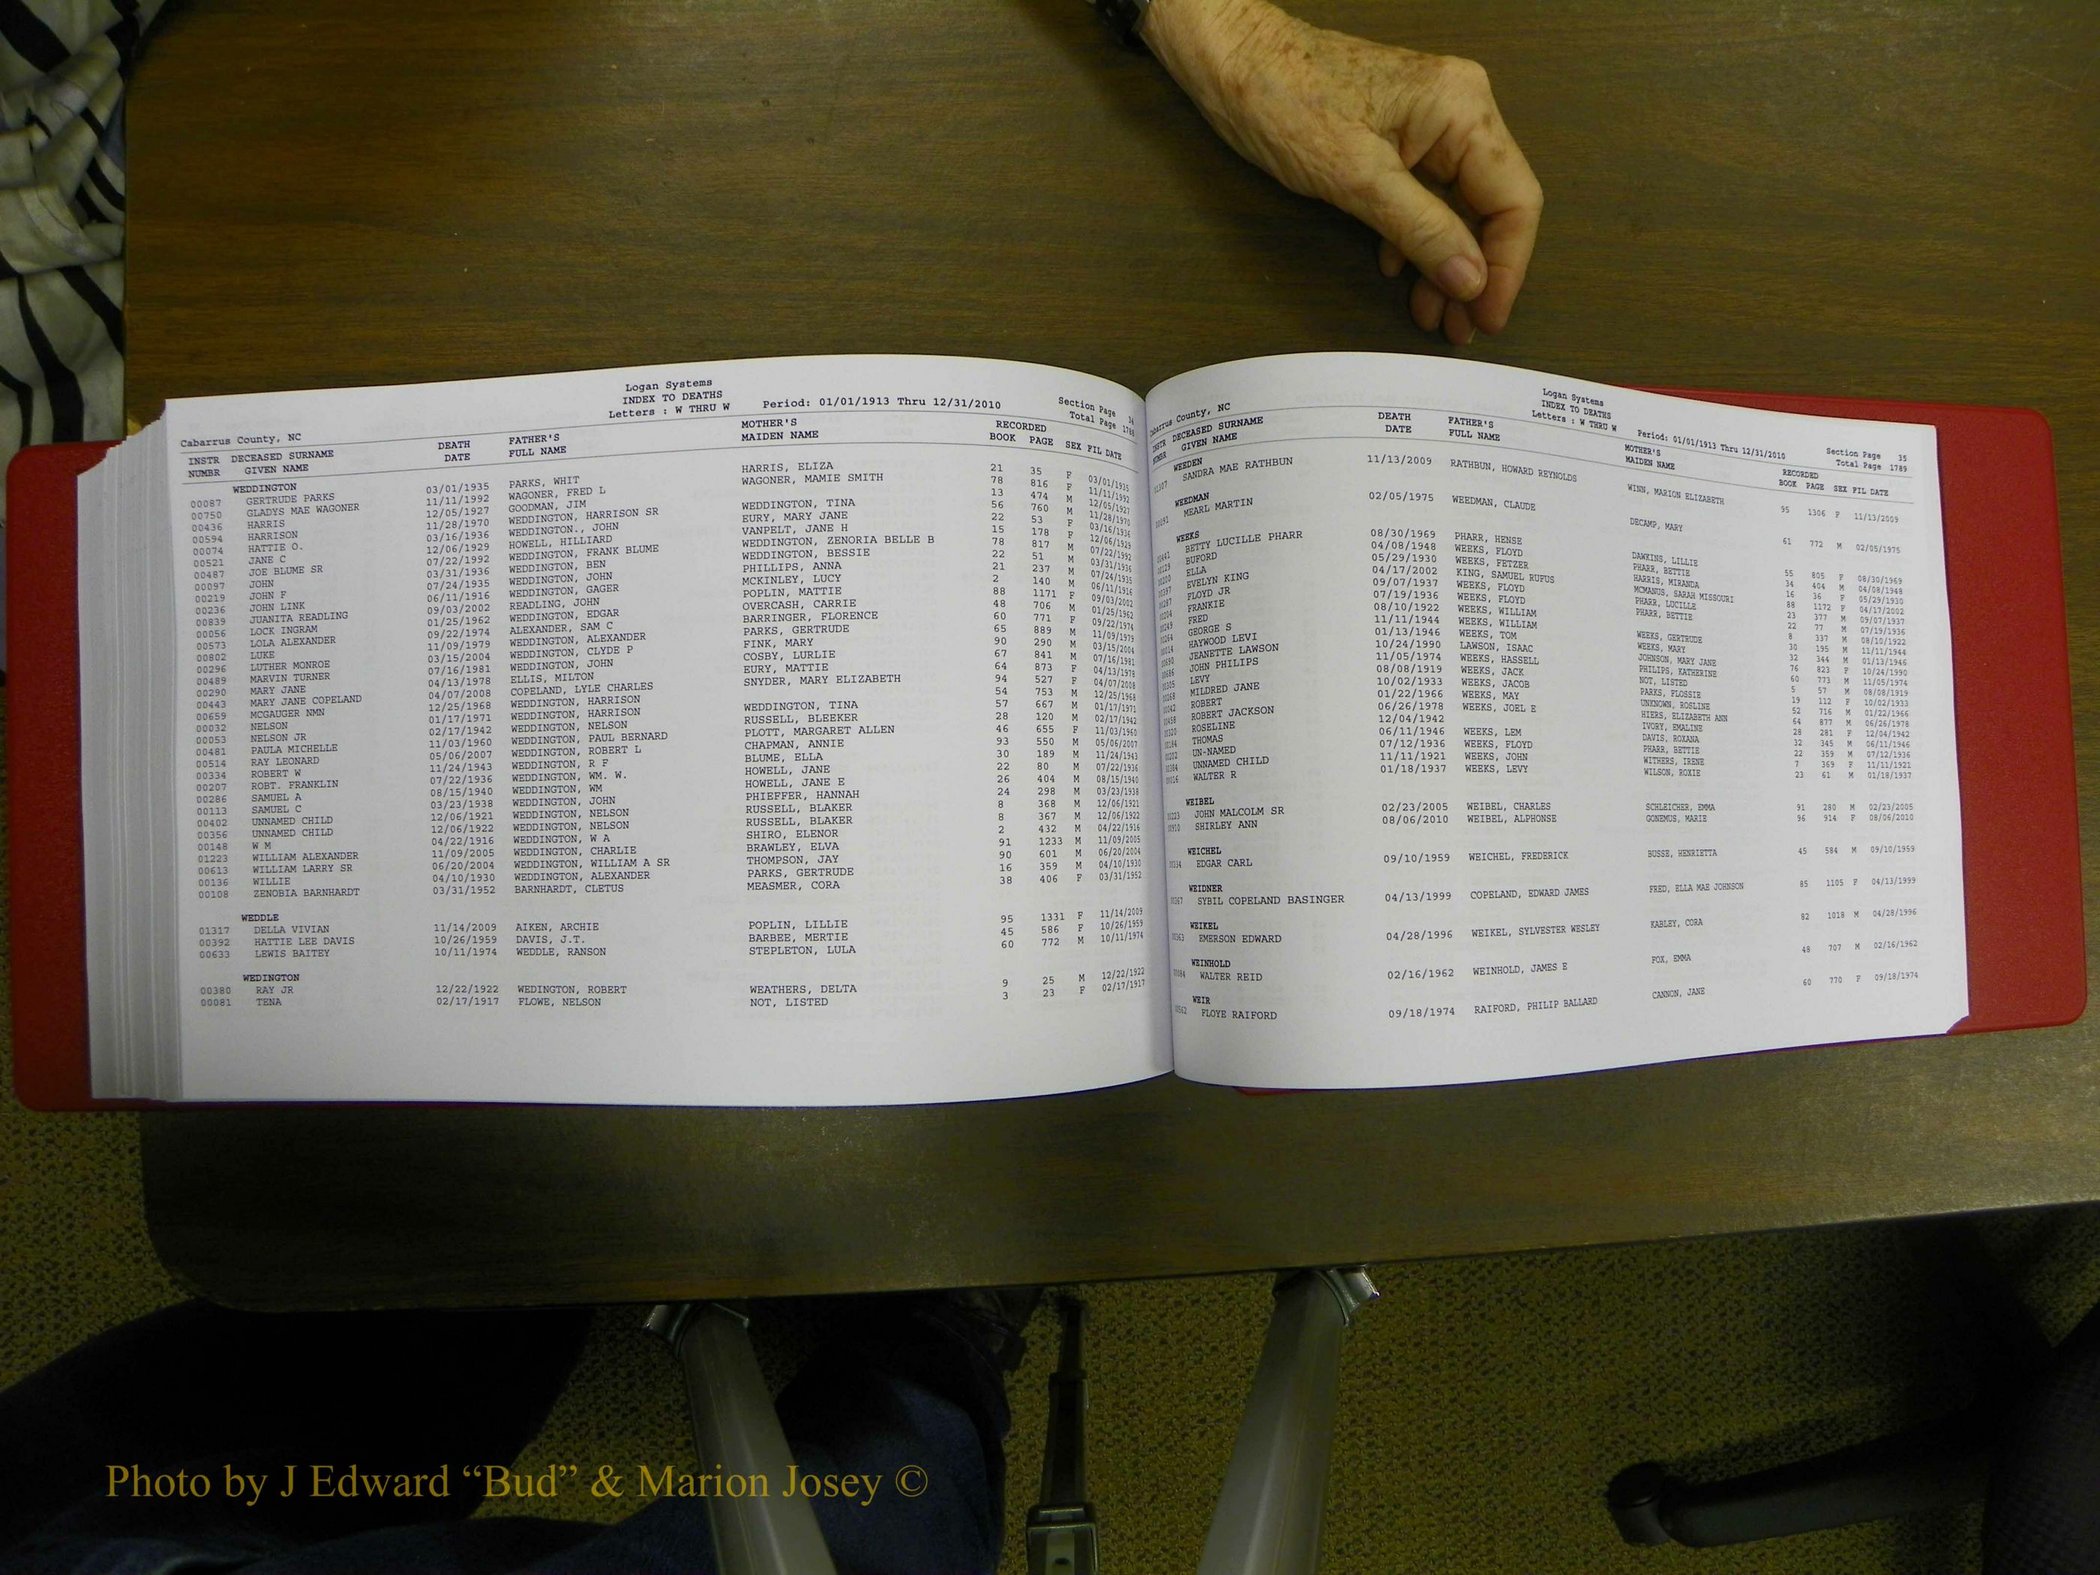 Logan Systems
INDEX TO DEATHS
Letters : W THRU W Period: 01/01/1913 Thru 12/31/2010
Section Page 34
Total Page 1788
Cabarrus County, NC
INSTR DECEASED SURNAME DEATH FATHER'S MOTHER'S RECORDED
NUMBR GIVEN NAME DATE FULL NAME MAIDEN NAME BOOK PAGE SEX FIL DATE
WEDDINGTON
00087 GERTRUDE PARKS 03/01/1935 PARKS, WHIT HARRIS, ELIZA 21 35 F 03/01/1935
00750 GLADYS MAE WAGONER 11/11/1992 WAGONER, FRED L WAGONER, MAMIE SMITH 78 816 F 11/11/1992
00436 HARRIS 12/05/1927 GOODMAN, JIM 13 474 M 12/05/1927
00594 HARRISON 11/28/1970 WEDDINGTON, HARRISON SR WEDDINGTON, TINA 56 760 M 11/28/1970
00074 HATTIE O. 03/16/1936 WEDDINGTON., JOHN EURY, MARY JANE 22 53 F 03/16/1936
00521 JANE C 12/06/1929 HOWELL, HILLIARD VANPELT, JANE H 15 178 F 12/06/1929
00487 JOE BLUME SR 07/22/1992 WEDDINGTON, FRANK BLUME WEDDINGTON, ZENORIA BELLE B 78 817 M 07/22/1992
00097 JOHN 03/31/1936 WEDDINGTON, BEN WEDDINGTON, BESSIE 22 51 M 03/31/1936
00219 JOHN F 07/24/1935 WEDDINGTON, JOHN PHILLIPS, ANNA 21 237 M 07/24/1935
00236 JOHN LINK 06/11/1916 WEDDINGTON, GAGER MCKINLEY, LUCY 2 140 M 06/11/1916
00839 JUANITA READLING 09/03/2002 READLING, JOHN POPLIN, MATTIE 88 1171 F 09/03/2002
00056 LOCK INGRAM 01/25/1962 WEDDINGTON, EDGAR OVERCASH, CARRIE 48 706 M 01/25/1962
00573 LOLA ALEXANDER 09/22/1974 ALEXANDER, SAM C BARRINGER, FLORENCE 60 771 F 09/22/1974
00802 LUKE 11/09/1979 WEDDINGTON, ALEXANDER PARKS, GERTRUDE 65 889 M 11/09/1979
00296 LUTHER MONROE 03/15/2004 WEDDINGTON, CLYDE P FINK, MARY 90 290 M 03/15/2004
00489 MARVIN TURNER 07/16/1981 WEDDINGTON, JOHN COSBY, LURLIE 67 841 M 07/16/1981
00290 MARY JANE 04/13/1978 ELLIS, MILTON EURY, MATTIE 64 873 F 04/13/1978
00443 MARY JANE COPELAND 04/07/2008 COPELAND, LYLE CHARLES SNYDER, MARY ELIZABETH 94 527 F 04/07/2008
00659 MCGAUGER NMN 12/25/1968 WEDDINGTON, HARRISON 54 753 M 12/25/1968
00032 NELSON 01/17/1971 WEDDINGTON, HARRISON WEDDINGTON, TINA 57 667 M 01/17/1971
00053 NELSON JR 02/17/1942 WEDDINGTON, NELSON RUSSELL, BLEEKER 28 120 M 02/17/1942
00481 PAULA MICHELLE 11/03/1960 WEDDINGTON, PAUL BERNARD PLOTT, MARGARET ALLEN 46 655 F 11/03/1960
00514 RAY LEONARD 05/06/2007 WEDDINGTON, ROBERT L CHAPMAN, ANNIE 93 550 M 05/06/2007
00334 ROBERT W 11/24/1943 WEDDINGTON, R F BLUME, ELLA 30 189 M 11/24/1943
00207 ROBT. FRANKLIN 07/22/1936 WEDDINGTON, WM. W. HOWELL, JANE 22 80 M 07/22/1936
00286 SAMUEL A 08/15/1940 WEDDINGTON, WM HOWELL, JANE E 26 404 M 08/15/1940
00113 SAMUEL C 03/23/1938 WEDDINGTON, JOHN PHIEFFER, HANNAH 24 298 M 03/23/1938
00402 UNNAMED CHILD 12/06/1921 WEDDINGTON, NELSON RUSSELL, BLAKER 8 368 M 12/06/1921
00356 UNNAMED CHILD 12/06/1922 WEDDINGTON, NELSON RUSSELL, BLAKER 8 367 M 12/06/1922
00148 W M 04/22/1916 WEDDINGTON, W A SHIRO, ELENOR 2 432 M 04/22/1916
01223 WILLIAM ALEXANDER 11/09/2005 WEDDINGTON, CHARLIE BRAWLEY, ELVA 91 1233 M 11/09/2005
00613 WILLIAM LARRY SR 06/20/2004 WEDDINGTON, WILLIAM A SR THOMPSON, JAY 90 601 M 06/20/2004
00136 WILLIE 04/10/1930 WEDDINGTON, ALEXANDER PARKS, GERTRUDE 16 359 M 04/10/1930
00108 ZENOBIA BARNHARDT 03/31/1952 BARNHARDT, CLETUS MEASMER, CORA 38 406 F 03/31/1952
WEDDLE
01317 DELLA VIVIAN 11/14/2009 AIKEN, ARCHIE POPLIN, LILLIE 95 1331 F 11/14/2009
00392 HATTIE LEE DAVIS 10/26/1959 DAVIS, J.T. BARBEE, MERTIE 45 586 F 10/26/1959
00633 LEWIS BAITEY 10/11/1974 WEDDLE, RANSON STEPLETON, LULA 60 772 M 10/11/1974
WEDINGTON
00380 RAY JR 12/22/1922 WEDINGTON, ROBERT WEATHERS, DELTA 9 25 M 12/22/1922
00081 TENA 02/17/1917 FLOWE, NELSON NOT, LISTED 3 23 F 02/17/1917
Logan Systems
INDEX TO DEATHS
Letters : W THRU W Period: 01/01/1913 Thru 12/31/2010
Section Page 35
Total Page 1789
Cabarrus County, NC
INSTR DECEASED SURNAME DEATH FATHER'S MOTHER'S RECORDED
NUMBR GIVEN NAME DATE FULL NAME MAIDEN NAME BOOK PAGE SEX FIL DATE
WEEDEN
01307 SANDRA MAE RATHBUN 11/13/2009 RATHBUN, HOWARD REYNOLDS WINN, MARION ELIZABETH 95 1306 F 11/13/2009
WEEDMAN
MEARL MARTIN 02/05/1975 WEEDMAN, CLAUDE DECAMP, MARY 61 772 M 02/05/1975
WEEKS
00441 BETTY LUCILLE PHARR 08/30/1969 PHARR, HENSE DAWKINS, LILLIE 55 805 F 08/30/1969
00129 BUFORD 04/08/1948 WEEKS, FLOYD PHARR, BETTIE 34 404 M 04/08/1948
00200 ELLA 05/29/1930 WEEKS, FETZER HARRIS, MIRANDA 16 36 F 05/29/1930
00397 EVELYN KING 04/17/2002 KING, SAMUEL RUFUS MCMANUS, SARAH MISSOURI 88 1172 F 04/17/2002
00287 FLOYD JR 09/07/1937 WEEKS, FLOYD PHARR, LUCILLE 23 377 M 09/07/1937
00204 FRANKIE 07/19/1936 WEEKS, FLOYD PHARR, BETTIE 22 77 M 07/19/1936
00249 FRED 08/10/1922 WEEKS, WILLIAM 8 337 M 08/10/1922
00264 GEORGE S 11/11/1944 WEEKS, WILLIAM WEEKS, GERTRUDE 30 195 M 11/11/1944
00014 HAYWOOD LEVI 01/13/1946 WEEKS, TOM WEEKS, MARY 32 344 M 01/13/1946
00690 JEANETTE LAWSON 10/24/1990 LAWSON, ISAAC JOHNSON, MARY JANE 76 823 F 10/24/1990
00686 JOHN PHILIPS 11/05/1974 WEEKS, HASSELL PHILIPS, KATHERINE 60 773 M 11/05/1974
00305 LEVY 08/08/1919 WEEKS, JACK NOT, LISTED 5 57 M 08/08/1919
00268 MILDRED JANE 10/02/1933 WEEKS, JACOB PARKS, FLOSSIE 19 112 F 10/02/1933
00042 ROBERT 01/22/1966 WEEKS, MAY UNKNOWN, ROSLINE 52 716 M 01/22/1966
00458 ROBERT JACKSON 06/26/1978 WEEKS, JOEL E HIERS, ELIZABETH ANN 64 877 M 06/26/1978
00320 ROSELINE 12/04/1942 IVORY, EMALINE 28 281 F 12/04/1942
00184 THOMAS 06/11/1946 WEEKS, LEM DAVIS, ROXANA 32 345 M 06/11/1946
00202 UN-NAMED 07/12/1936 WEEKS, FLOYD PHARR, BETTIE 22 359 M 07/12/1936
00384 UNNAMED CHILD 11/11/1921 WEEKS, JOHN WITHERS, IRENE 7 369 F 11/11/1921
00016 WALTER R 01/18/1937 WEEKS, LEVY WILSON, ROXIE 23 61 M 01/18/1937
WEIBEL
00223 JOHN MALCOLM SR 02/23/2005 WEIBEL, CHARLES SCHLEICHER, EMMA 91 280 M 02/23/2005
00910 SHIRLEY ANN 08/06/2010 WEIBEL, ALPHONSE GONEMUS, MARIE 96 914 F 08/06/2010
WEICHEL
00334 EDGAR CARL 09/10/1959 WEICHEL, FREDERICK BUSSE, HENRIETTA 45 584 M 09/10/1959
WEIDNER
00367 SYBIL COPELAND BASINGER 04/13/1999 COPELAND, EDWARD JAMES FRED, ELLA MAE JOHNSON 85 1105 F 04/13/1999
WEIKEL
00363 EMERSON EDWARD 04/28/1996 WEIKEL, SYLVESTER WESLEY KABLEY, CORA 82 1018 M 04/28/1996
WEINHOLD
00084 WALTER REID 02/16/1962 WEINHOLD, JAMES E FOX, EMMA 48 707 M 02/16/1962
WEIR
00562 FLOYE RAIFORD 09/18/1974 RAIFORD, PHILIP BALLARD CANNON, JANE 60 770 F 09/18/1974
Photo by J Edward “Bud” & Marion Josey ©